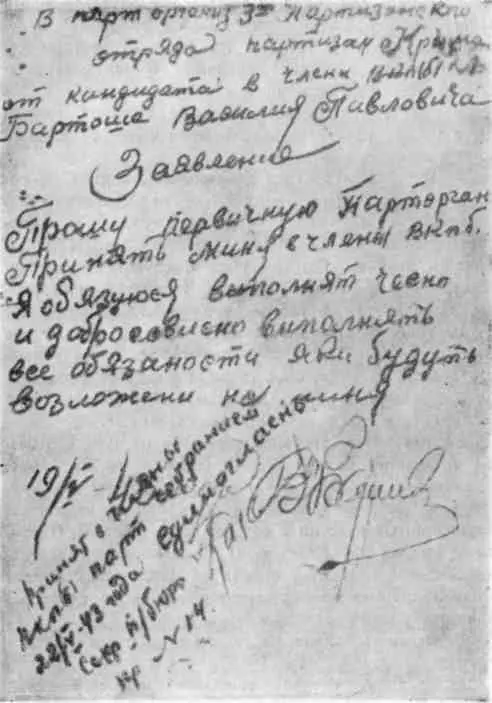 В парт организ 3го Партизанского
отряда партизан Крыма
от кандидата в члени ВКПБ
Бартоша Василия Павловича
Заявление
Прошу первичную Парторган
Принять миня в члены ВКПБ.
Я обязуюся выполнят чесно
и добросовисно выполнять
все обязаности яки будуть
возложени на миня
19/V
Принят в члены
ВКПБ парт собранием
22/V-43 года единогласно
Секр п/бюро
пр N 14.